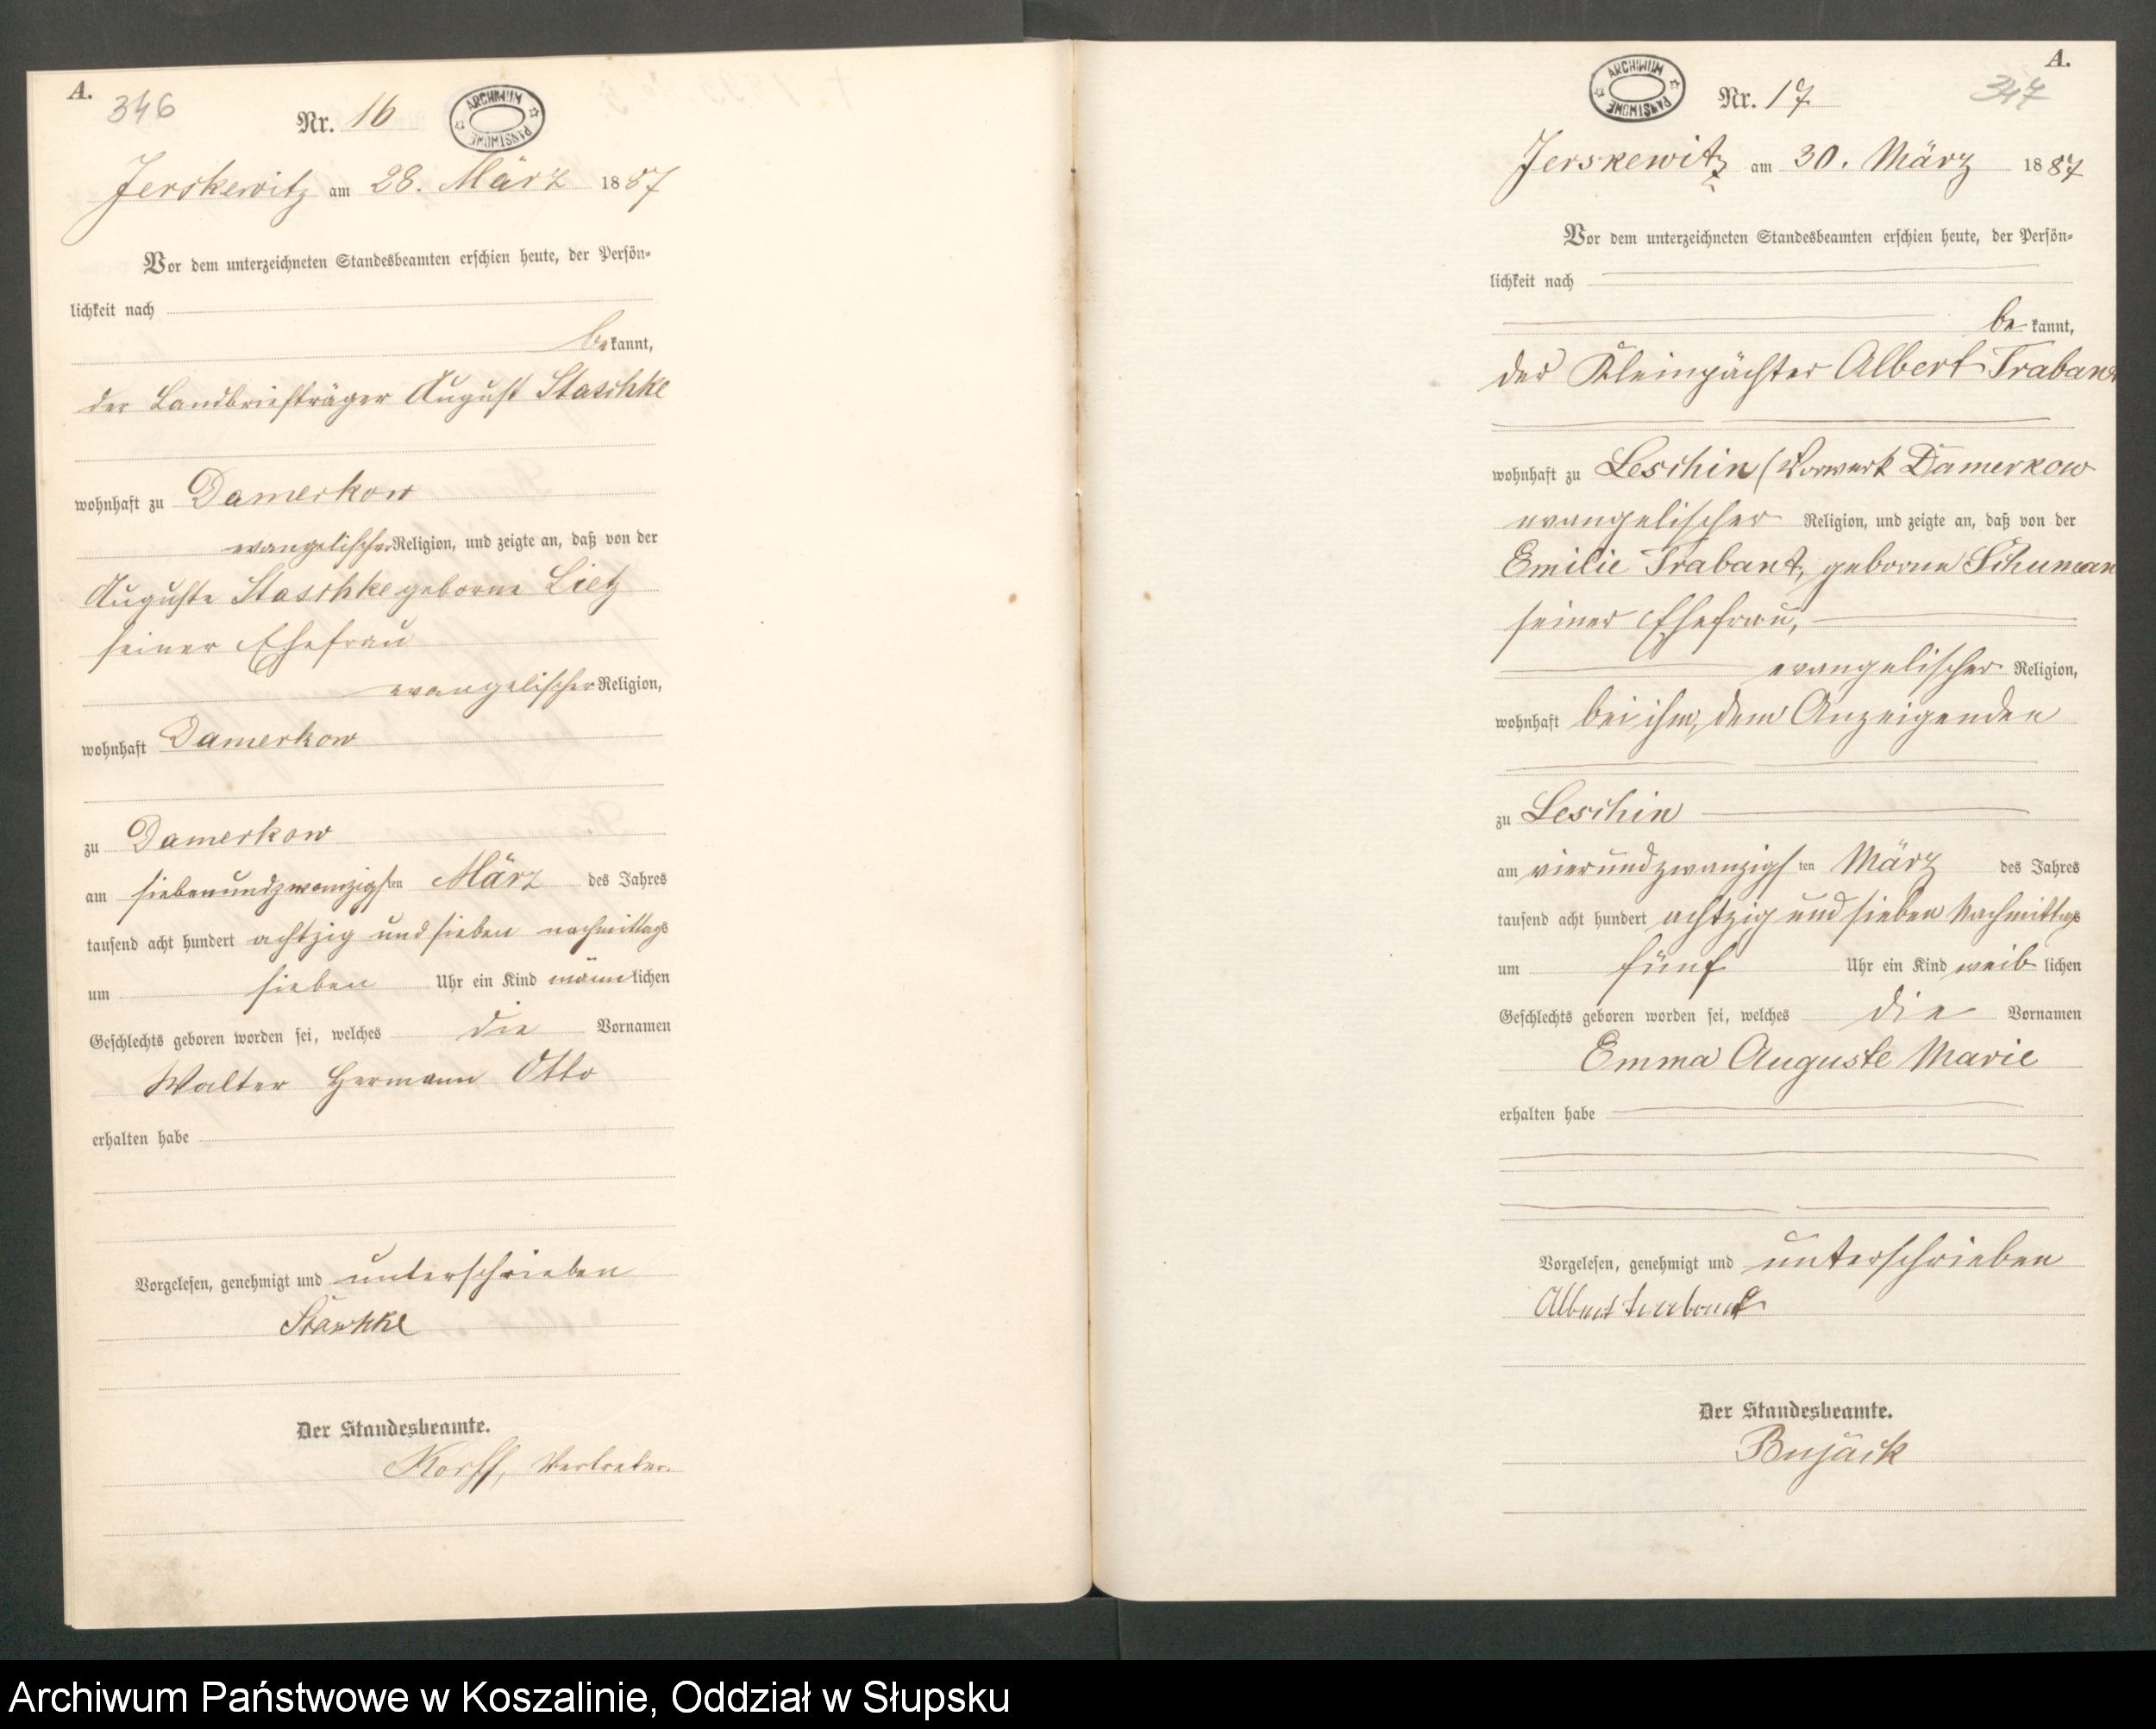 A.
346
Nr. 16
ARCHIWUM PAŃSTWOWE
Jerskewitz am 28. März 1887
Vor dem unterzeichneten Standesbeamten erschien heute, der Persön-
lichkeit nach
bekannt,
der Landbriefträger August Staschke
wohnhaft zu Damerkow
evangelischer Religion, und zeigte an, daß von der
Auguste Staschke geborne Lietz
seiner Ehefrau
evangelischer Religion,
wohnhaft Damerkow
zu Damerkow
am siebenundzwanzigsten März des Jahres
tausend acht hundert achtzig und sieben nachmittags
um sieben Uhr ein Kind männlichen
Geschlechts geboren worden sei, welches die Vornamen
Walter Hermann Otto
erhalten habe
Vorgelesen, genehmigt und unterschrieben
Staschke
Der Standesbeamte.
Korff, Vertreter.
A.
347
ARCHIWUM PAŃSTWOWE
Nr. 17
Jerskewitz am 30. März 1887
Vor dem unterzeichneten Standesbeamten erschien heute, der Persön-
lichkeit nach
bekannt,
der Kleinpächter Albert Trabant
wohnhaft zu Leschin (Vorwerk Damerkow
evangelischer Religion, und zeigte an, daß von der
Emilie Trabant, geborne Schuman
seiner Ehefrau,
evangelischer Religion,
wohnhaft bei ihm, dem Anzeigenden
zu Leschin
am vierundzwanzigsten März des Jahres
tausend acht hundert achtzig und sieben Nachmittags
um fünf Uhr ein Kind weiblichen
Geschlechts geboren worden sei, welches die Vornamen
Emma Auguste Marie
erhalten habe
Vorgelesen, genehmigt und unterschrieben
Albert Trabant
Der Standesbeamte.
Bujack
Archiwum Państwowe w Koszalinie, Oddział w Słupsku